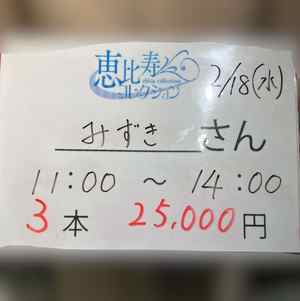 恵比寿
コレクション
2/18(水)
みずき さん
11:00 ～ 14:00
3本 25,000円